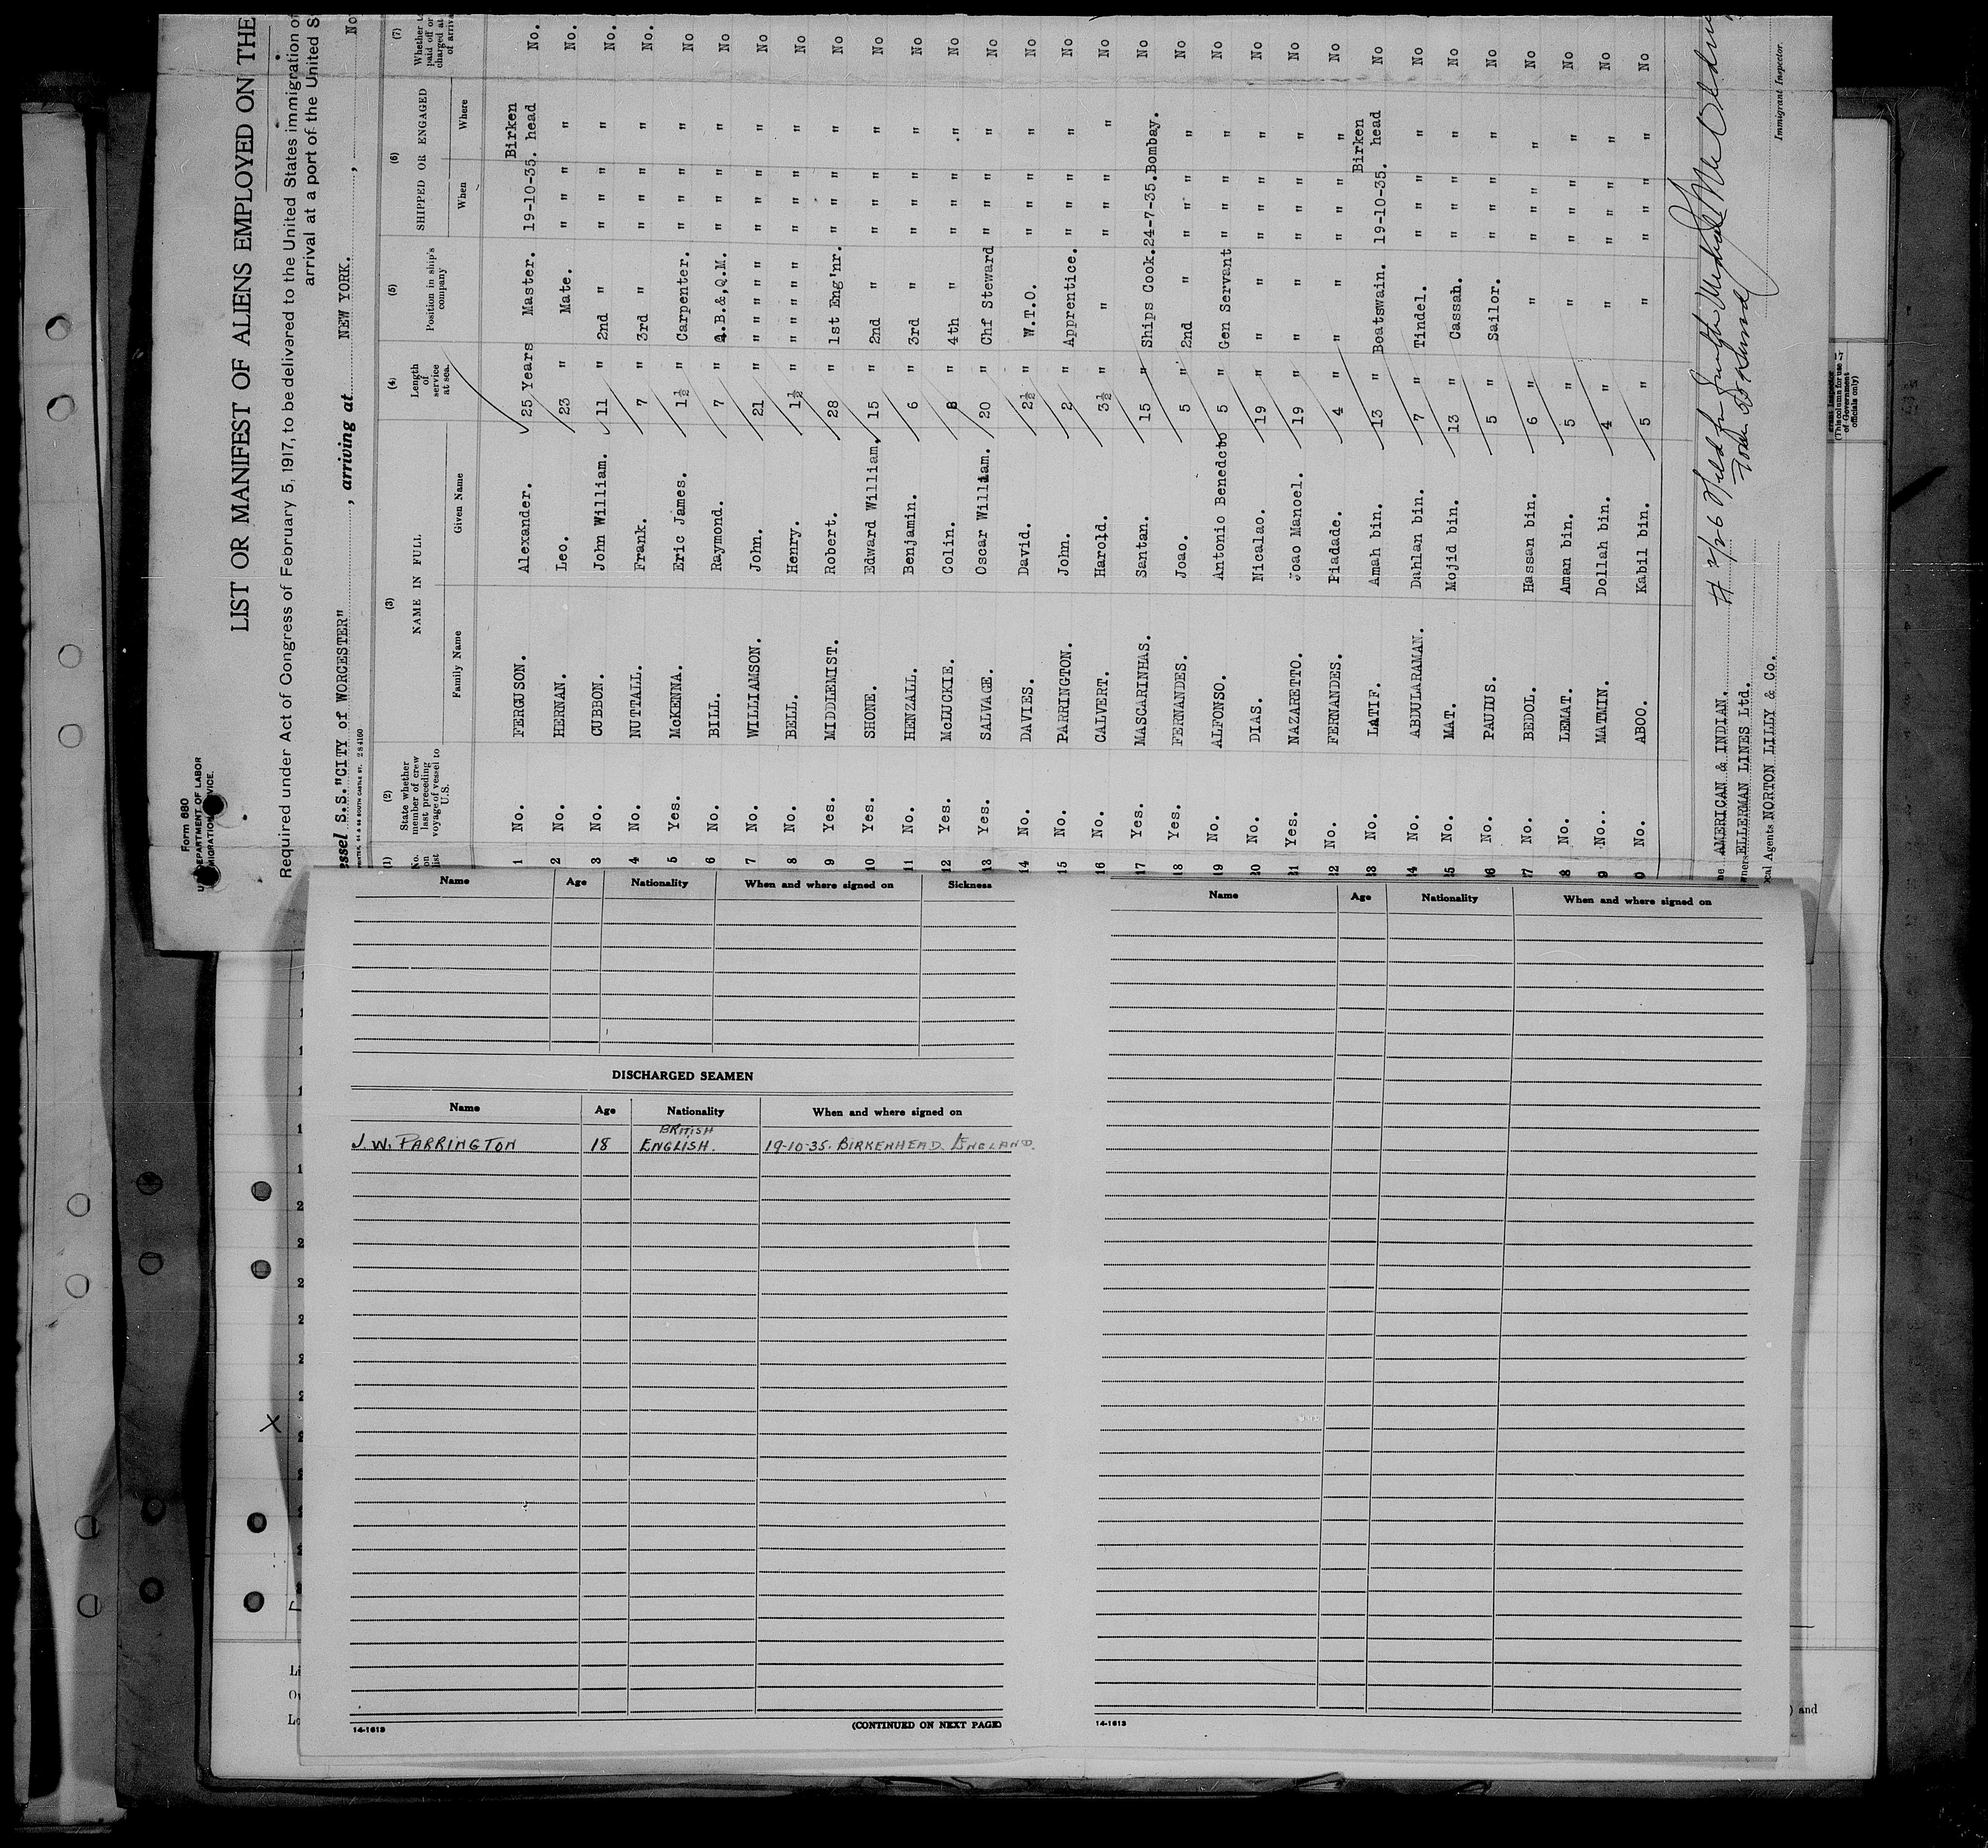 Form 680
U.S. DEPARTMENT OF LABOR
IMMIGRATION SERVICE
LIST OR MANIFEST OF ALIENS EMPLOYED ON THE
Required under Act of Congress of February 5, 1917, to be delivered to the United States immigration
arrival at a port of the United S
essel S.S."CITY of WORCESTER" , arriving at NEW YORK. ,
(1) (2) (3) (4) (5) (6) (7)
No. on list State whether member of crew last preceding voyage of vessel to U.S. NAME IN FULL Length of service at sea. Position in ship's company SHIPPED OR ENGAGED Whether
Family Name Given Name When Where
1 No. FERGUSON. Alexander. 25 Years Master. 19-10-35. Birken head No.
2 No. HERNAN. Leo. 23 " Mate. " " " " No.
3 No. CUBBON. John William. 11 " 2nd " " " " " No.
4 No. NUTTALL. Frank. 7 " 3rd " " " " " No.
5 Yes. McKENNA. Eric James. 1½ " Carpenter. " " " " No
6 No. BILL. Raymond. 7 " A.B.&,Q.M. " " " " No
7 No. WILLIAMSON. John. 21 " " " " " " " " No
8 No. BELL. Henry. 1½ " " " " " " " " No
9 Yes. MIDDLEMIST. Robert. 28 " 1st Eng'nr. " " " " No
10 Yes. SHONE. Edward William. 15 " 2nd " " " " " No
11 No. HENZALL. Benjamin. 6 " 3rd " " " " " No
12 Yes. McLUCKIE. Colin. 8 " 4th " " " " " No
13 Yes. SALVAGE. Oscar William. 20 " Chf Steward " " " " No
14 No. DAVIES. David. 2½ " W.T.O. " " " " No
15 No. PARRINGTON. John. 2 " Apprentice. " " " " No
16 No. CALVERT. Harold. 3½ " " " " " " No
17 Yes. MASCARINHAS. Santan. 15 " Ships Cook. 24-7-35. Bombay. No
18 Yes. FERNANDES. Joao. 5 " 2nd " " " " " No
19 No. ALFONSO. Antonio Benedcto 5 " Gen Servant " " " " No
20 No. DIAS. Nicalao. 19 " " " " " " No
21 Yes. NAZARETTO. Joao Manoel. 19 " " " " " " No
22 No. FERNANDES. Piadade. 4 " " " " " " No
23 No. LATIF. Amah bin. 13 " Boatswain. 19-10-35. Birken head No
24 No. ABDULARAMAN. Dahlan bin. 7 " Tindel. " " " " No
25 No. MAT. Mojid bin. 13 " Cassah. " " " " No
26 No. PAUIUS. 5 " Sailor. " " " " No
27 No. BEDOL. Hassan bin. 6 " " " " " " No
28 No. LEMAT. Aman bin. 5 " " " " " " No
9 No.. MATMIN. Dollah bin. 4 " " " " " " No
0 No. ABOO. Kabil bin. 5 " " " " " " No
AMERICAN & INDIAN.
ELLERMAN LINES Ltd.
Agents NORTON LILLY & Co.
Immigrant Inspector.
(This column for use of Government officials only)
Name Age Nationality When and where signed on Sickness
DISCHARGED SEAMEN
Name Age Nationality When and where signed on
BRITISH
J. W. PARRINGTON 18 ENGLISH. 19-10-35. BIRKENHEAD. ENGLAND.
14-1613 (CONTINUED ON NEXT PAGE)
Name Age Nationality When and where signed on
14-1613
) and